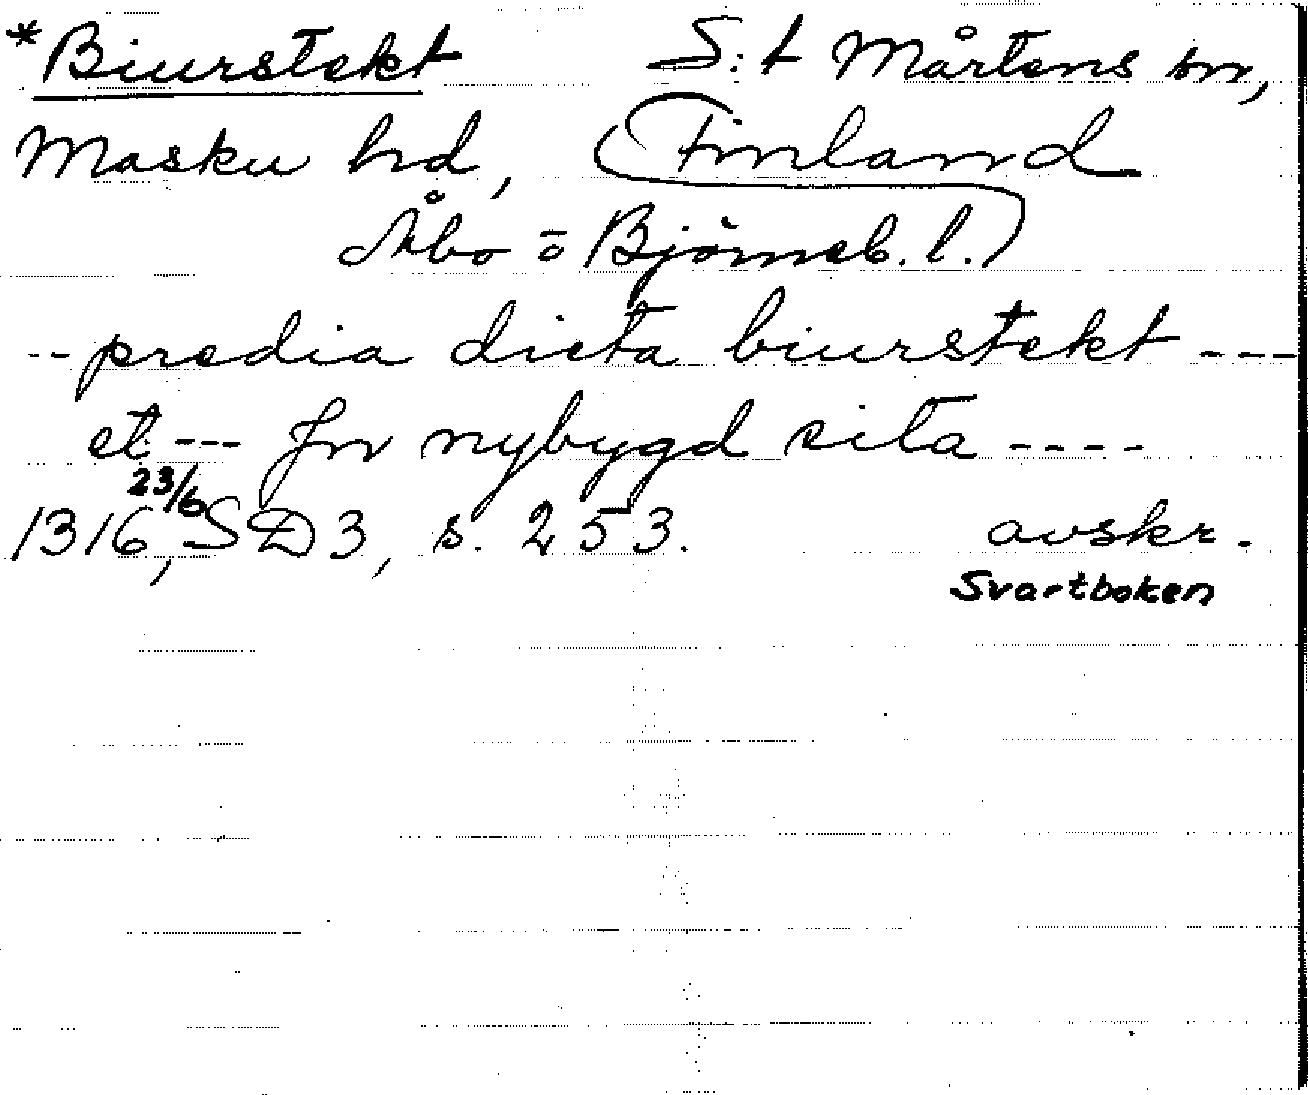 *Biurstekt S:t Mårtens sn,
Masku hd, (Finland
Åbo o Björneb. l.)
-- predia dicta biurstekt ---
et --- jn nybygd sita ----
1316 23/6, SD3, s. 253. avskr.
Svartboken